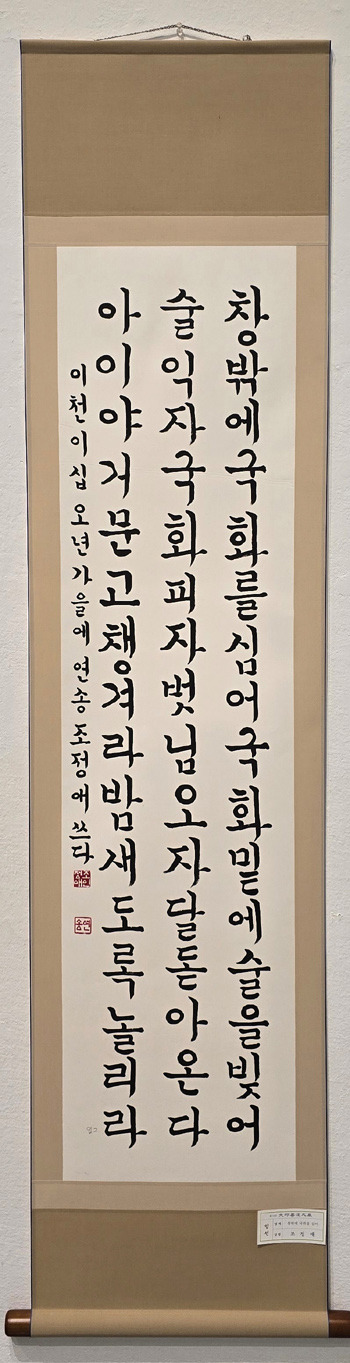 창밖에국화를심어국화밑에술을빚어
술익자국화피자벗님오자달돋아온다
아이야거문고챙겨라밤새도록놀리라
이천이십오년가을에 연송 조정애 쓰다
연송
조 정 애